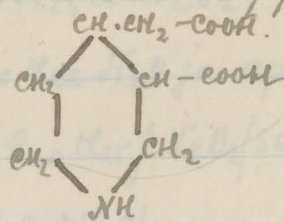 CH·CH₂-COOH.
CH₂ CH-COOH
CH₂ CH₂
NH